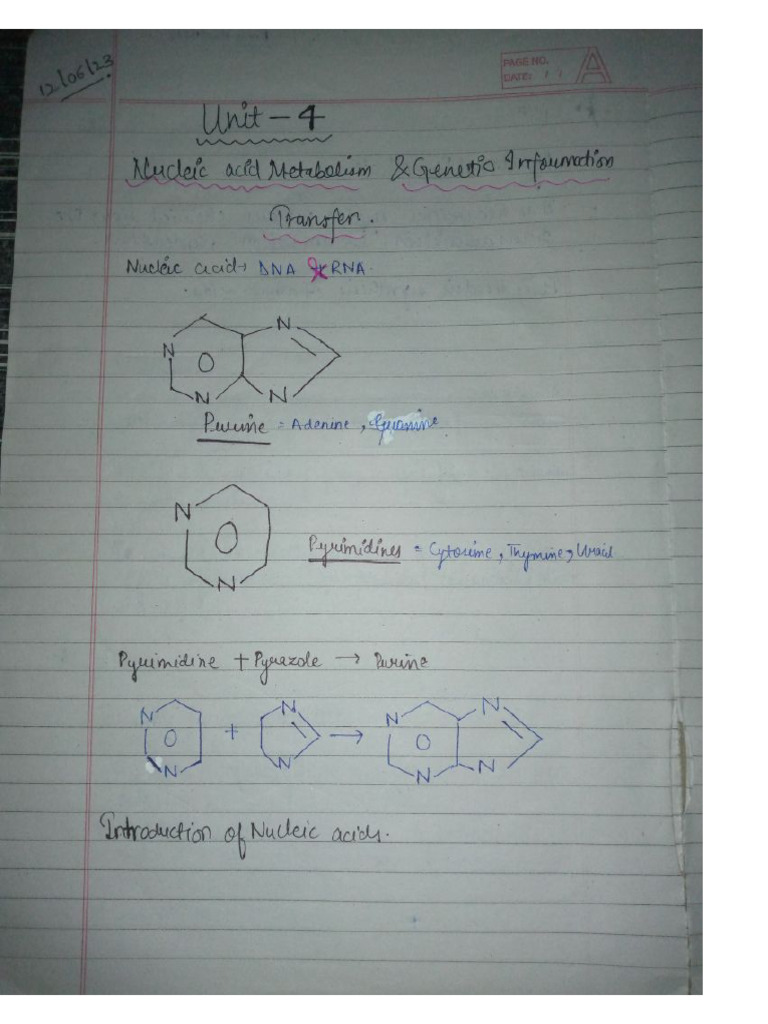 12/06/23
PAGE NO.
DATE: / /
Unit - 4
Nucleic acid Metabolism & Genetic Information
Transfer.
Nucleic acid → DNA & RNA.
N
N
N
N
Purine = Adenine, Guanine
N
N
Pyrimidines = Cytosine, Thymine, Uracil
Pyrimidine + Pyrazole → Purine
N N + N N → N N N N
Introduction of Nucleic acids.